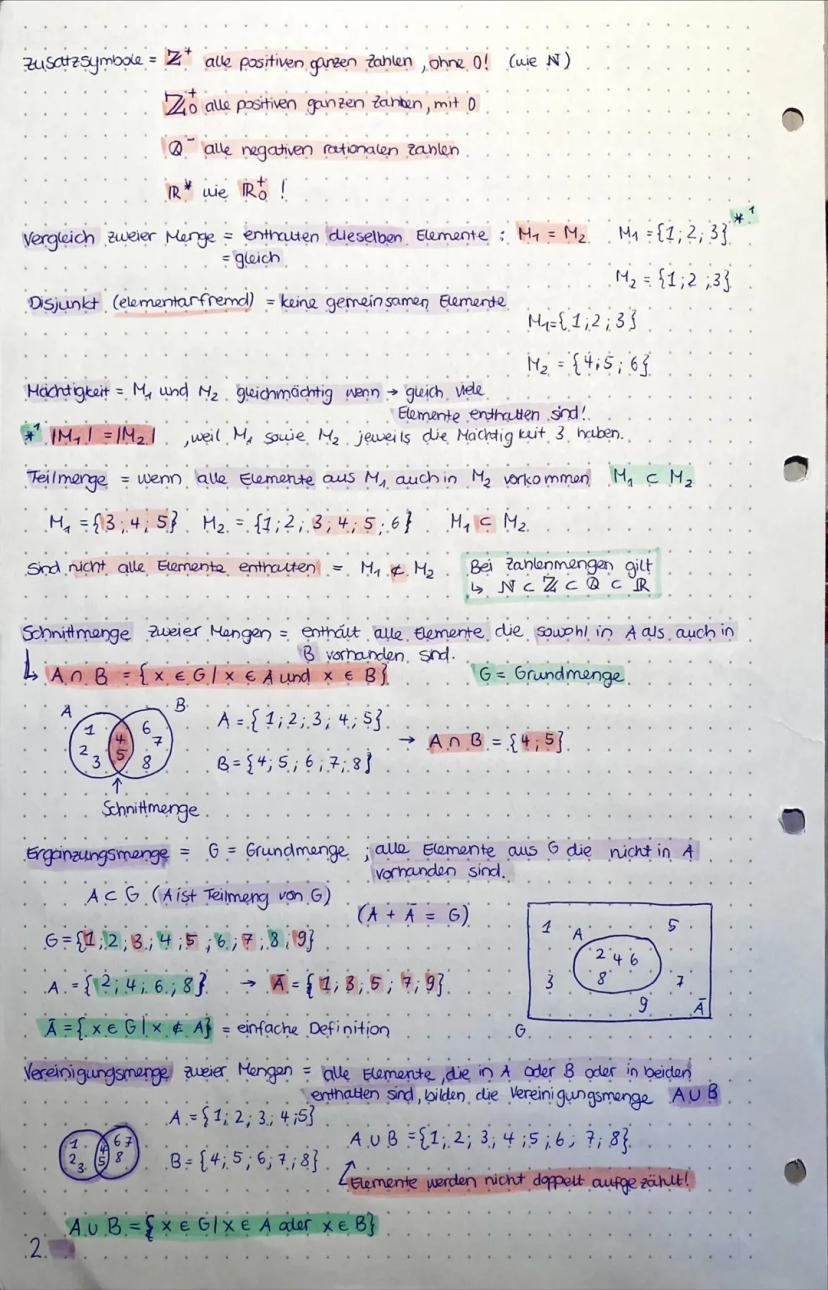 Zusatzsymbole = ℤ⁺ alle positiven ganzen Zahlen, ohne 0! (wie ℕ)
ℤ₀⁺ alle positiven ganzen Zahlen, mit 0
ℚ⁻ alle negativen rationalen Zahlen
ℝ* wie ℝ₀⁺ !
Vergleich zweier Menge = enthalten dieselben Elemente : M₁ = M₂ M₁ = {1; 2; 3} *¹
= gleich
M₂ = {1; 2; 3}
Disjunkt (elementarfremd) = keine gemeinsamen Elemente
M₁ = {1; 2; 3}
M₂ = {4; 5; 6}
Mächtigkeit = M₁ und M₂ gleichmächtig wenn → gleich viele
Elemente enthalten sind!
*¹ |M₁| = |M₂| , weil M₁ sowie M₂ jeweils die Mächtigkeit 3 haben.
Teilmenge = wenn alle Elemente aus M₁ auch in M₂ vorkommen M₁ ⊂ M₂
M₁ = {3; 4; 5} M₂ = {1; 2; 3; 4; 5; 6} M₁ ⊂ M₂
Sind nicht alle Elemente enthalten = M₁ ⊄ M₂
Bei Zahlenmengen gilt
↳ ℕ ⊂ ℤ ⊂ ℚ ⊂ ℝ
Schnittmenge zweier Mengen = enthält alle Elemente die sowohl in A als auch in
B vorhanden sind.
↳ A ∩ B = {x ∈ G | x ∈ A und x ∈ B} G = Grundmenge
A B
1 2 3 4 5 6 7 8
A = {1; 2; 3; 4; 5}
B = {4; 5; 6; 7; 8}
→ A ∩ B = {4; 5}
↑
Schnittmenge
Ergänzungsmenge = G = Grundmenge ; alle Elemente aus G die nicht in A
vorhanden sind.
A ⊂ G (A ist Teilmeng von G)
(A + Ā = G)
G = {1; 2; 3; 4; 5; 6; 7; 8; 9}
A = {2; 4; 6; 8} → Ā = {1; 3; 5; 7; 9}
Ā = {x ∈ G | x ∉ A} = einfache Definition
1 A 5
2 4 6
3 8 7
9 Ā
G
Vereinigungsmenge zweier Mengen = alle Elemente, die in A oder B oder in beiden
enthalten sind, bilden die Vereinigungsmenge A∪B
A = {1; 2; 3; 4; 5}
1 2 3 4 5 6 7 8
B = {4; 5; 6; 7; 8}
A ∪ B = {1; 2; 3; 4; 5; 6; 7; 8}
Elemente werden nicht doppelt aufgezählt!
A ∪ B = {x ∈ G | x ∈ A oder x ∈ B}
2.